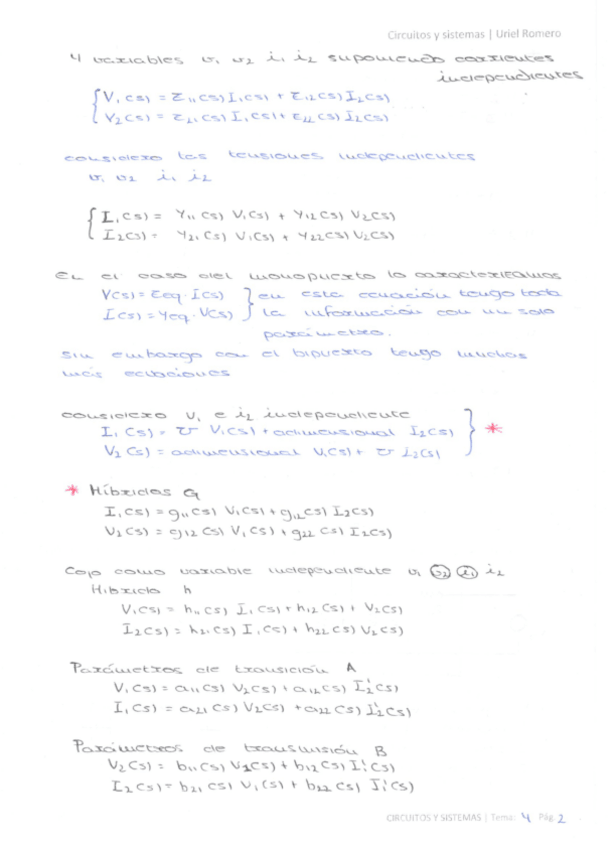 Circuitos y sistemas | Uriel Romero
4 variables v₁ v₂ i₁ i₂ suponiendo corrientes
independientes
V₁(s) = Z₁₁(s) I₁(s) + Z₁₂(s) I₂(s)
V₂(s) = Z₂₁(s) I₁(s) + Z₂₂(s) I₂(s)
considero las tensiones independientes
v₁ v₂ i₁ i₂
I₁(s) = Y₁₁(s) V₁(s) + Y₁₂(s) V₂(s)
I₂(s) = Y₂₁(s) V₁(s) + Y₂₂(s) V₂(s)
En el caso del monopuerto lo caracterizamos
V(s) = Zeq · I(s) } en esta ecuación tengo toda
I(s) = Yeq · V(s) } la información con un solo
parámetro.
sin embargo con el bipuerto tengo muchas
más ecuaciones
considero V₁ e i₂ independiente
I₁(s) = ℧ V₁(s) + adimensional I₂(s)
V₂(s) = adimensional V₁(s) + ℧ I₂(s) } *
* Híbridos G
I₁(s) = g₁₁(s) V₁(s) + g₁₂(s) I₂(s)
V₂(s) = g₁₂(s) V₁(s) + g₂₂(s) I₂(s)
Cojo como variable independiente v₁ v₂ i₁ i₂
Híbrido h
V₁(s) = h₁₁(s) I₁(s) + h₁₂(s) + V₂(s)
I₂(s) = h₂₁(s) I₁(s) + h₂₂(s) V₂(s)
Parámetros de transición A
V₁(s) = a₁₁(s) V₂(s) + a₁₂(s) I₂'(s)
I₁(s) = a₂₁(s) V₂(s) + a₂₂(s) I₂'(s)
Parámetros de transmisión B
V₂(s) = b₁₁(s) V₁(s) + b₁₂(s) I₁'(s)
I₂(s) = b₂₁(s) V₁(s) + b₂₂(s) I₁'(s)
CIRCUITOS Y SISTEMAS | Tema: 4 Pág. 2